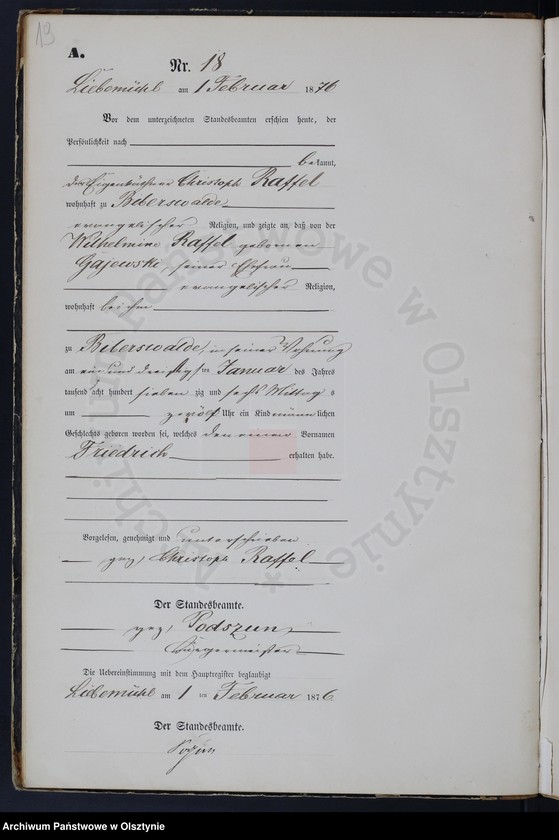 19
A.
Nr. 18
Liebemühl am 1 Februar 1876
Vor dem unterzeichneten Standesbeamten erschien heute, der
Persönlichkeit nach
bekannt,
der Eigenkäthner Christoph Raffel
wohnhaft zu Biberswalde
evangelischer Religion, und zeigte an, daß von der
Wilhelmine Raffel geborenen
Gajewski, seiner Ehefrau
evangelischer Religion,
wohnhaft bei ihm
zu Biberswalde, in seiner Wohnung
am ein und dreißigsten Januar des Jahres
tausend acht hundert sieben zig und sechs Mittags
um zwölf Uhr ein Kind männlichen
Geschlechts geboren worden sei, welches den Vornamen
Friedrich erhalten habe.
Vorgelesen, genehmigt und unterschrieben
gez, Christoph Raffel
Der Standesbeamte.
gez, Podszun,
Bürgermeister
Die Uebereinstimmung mit dem Hauptregister beglaubigt
Liebemühl am 1 ten Februar 1876
Der Standesbeamte.
Archiwum Państwowe w Olsztynie
Archiwum Państwowe w Olsztynie